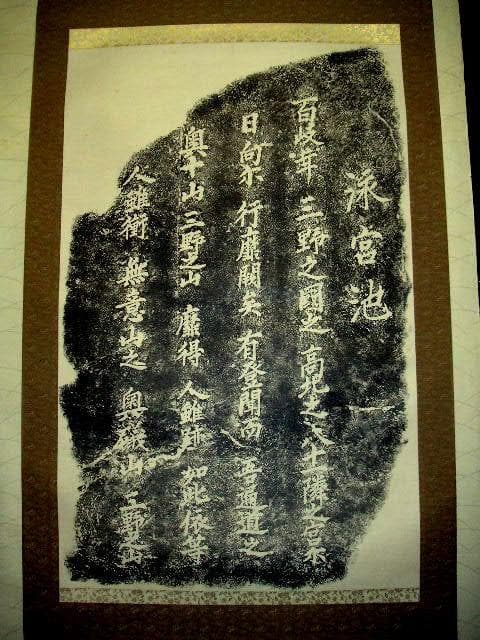 泳宮池
百岐年 三野之國之 高北之八十一隣之宮尓
日向尓 行靡闕矣 有登聞而 吾通道之
奥十山 三野之山 靡得 人雖跡 如此依等
人雖衝 無意山之 奥礒山 三野之山